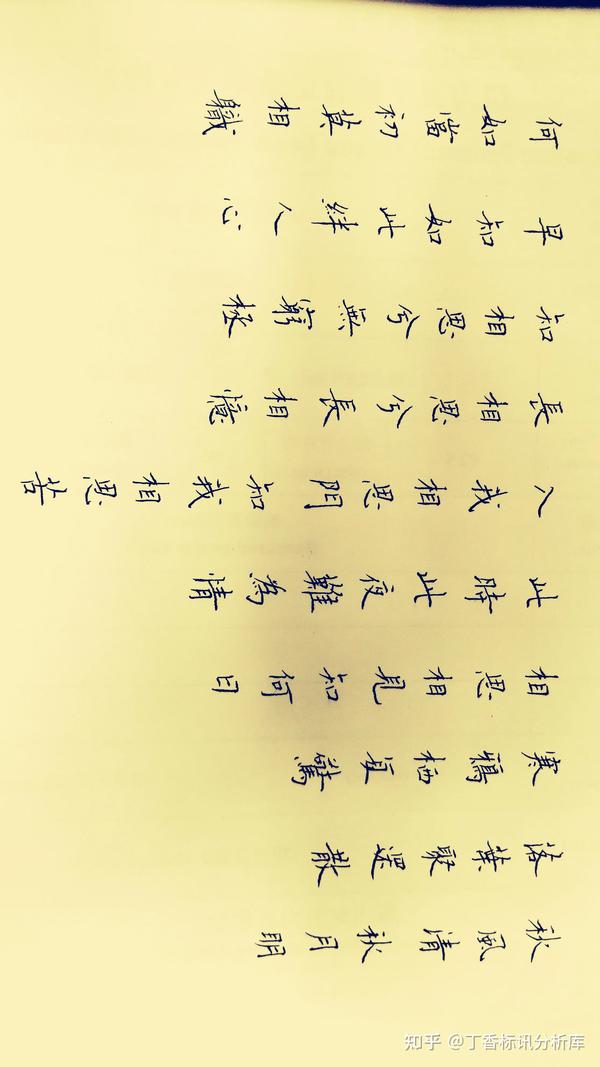 秋風清秋月明
落葉聚還散
寒鴉栖复驚
相思相見知何日
此時此夜難為情
入我相思門 知我相思苦
長相思兮長相憶
知相思兮無窮極
早知如此絆人心
何如當初莫相軄
知乎 @丁香标讯分析库